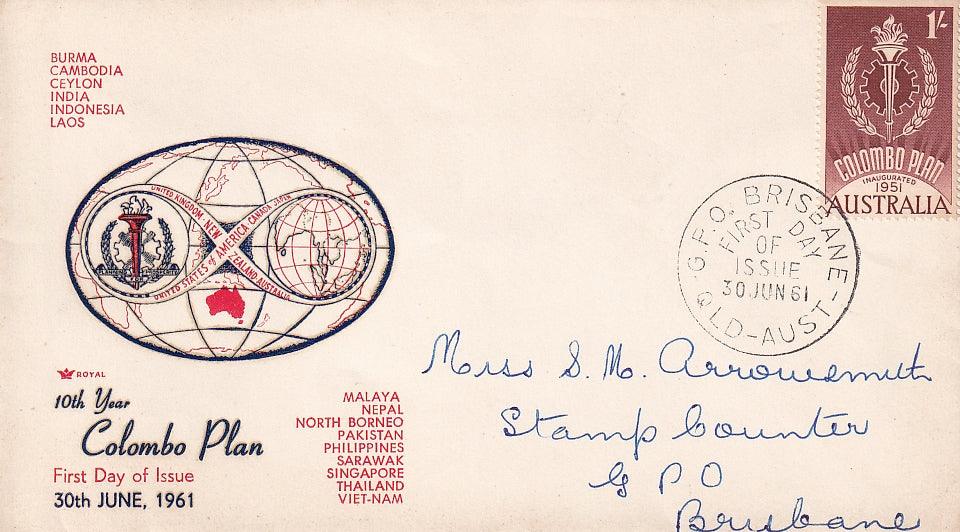 BURMA
CAMBODIA
CEYLON
INDIA
INDONESIA
LAOS
1/-
COLOMBO PLAN
INAUGURATED
1951
AUSTRALIA
G.P.O. BRISBANE-
QLD-AUST-
FIRST
DAY
OF
ISSUE
30 JUN 61
UNITED KINGDOM · NEW ZEALAND · AUSTRALIA
UNITED STATES of AMERICA CANADA JAPAN
ROYAL
10th Year
Colombo Plan
First Day of Issue
30th JUNE, 1961
MALAYA
NEPAL
NORTH BORNEO
PAKISTAN
PHILIPPINES
SARAWAK
SINGAPORE
THAILAND
VIET-NAM
Miss S. M. Arrowsmith
Stamp Counter
G P O
Brisbane